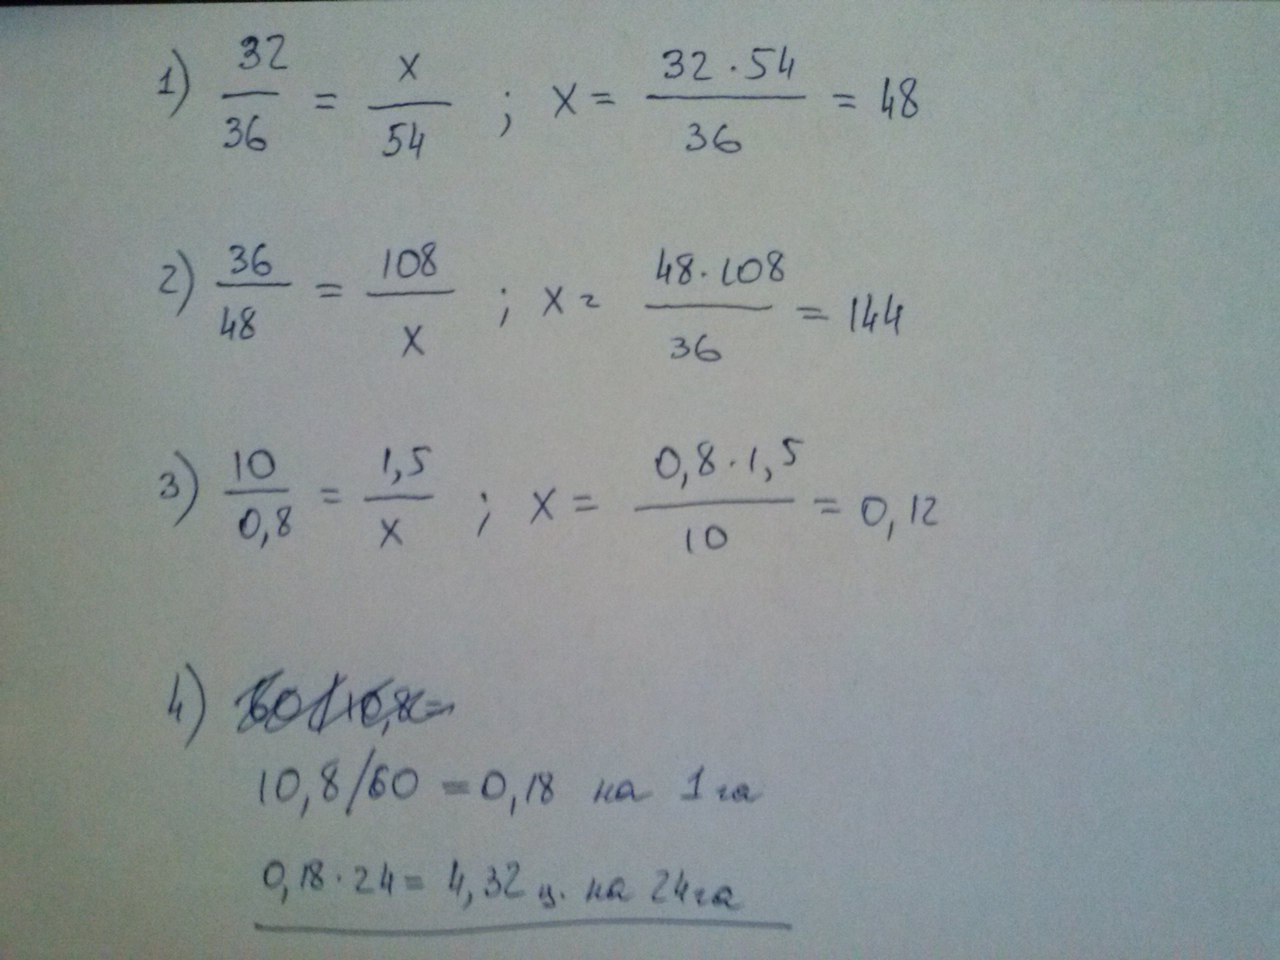 1) 32/36 = x/54 ; x = 32·54/36 = 48
2) 36/48 = 108/x ; x = 48·108/36 = 144
3) 10/0,8 = 1,5/x ; x = 0,8·1,5/10 = 0,12
4)
10,8/60 = 0,18 на 1 га
0,18·24 = 4,32 ц. на 24 га